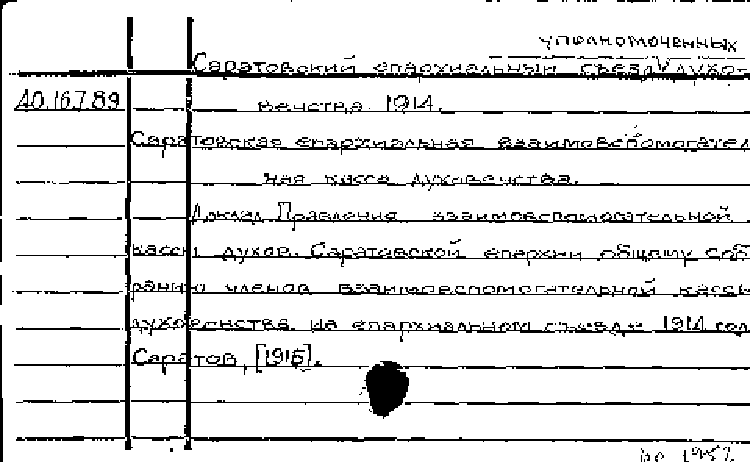 уполномоченных
Саратовский епархиальный съезд духо-
А0.167.89 венства 1914.
Саратовская епархиальная взаимовспомогател
ная касса духовенства.
Доклад Правления взаимовспомогательной
кассы духов. Саратовской епархии общему соб
ранию членов взаимовспомогательной кассы
духовенства на епархиальном съезде 1914 год
Саратов, [1915].
до 1957